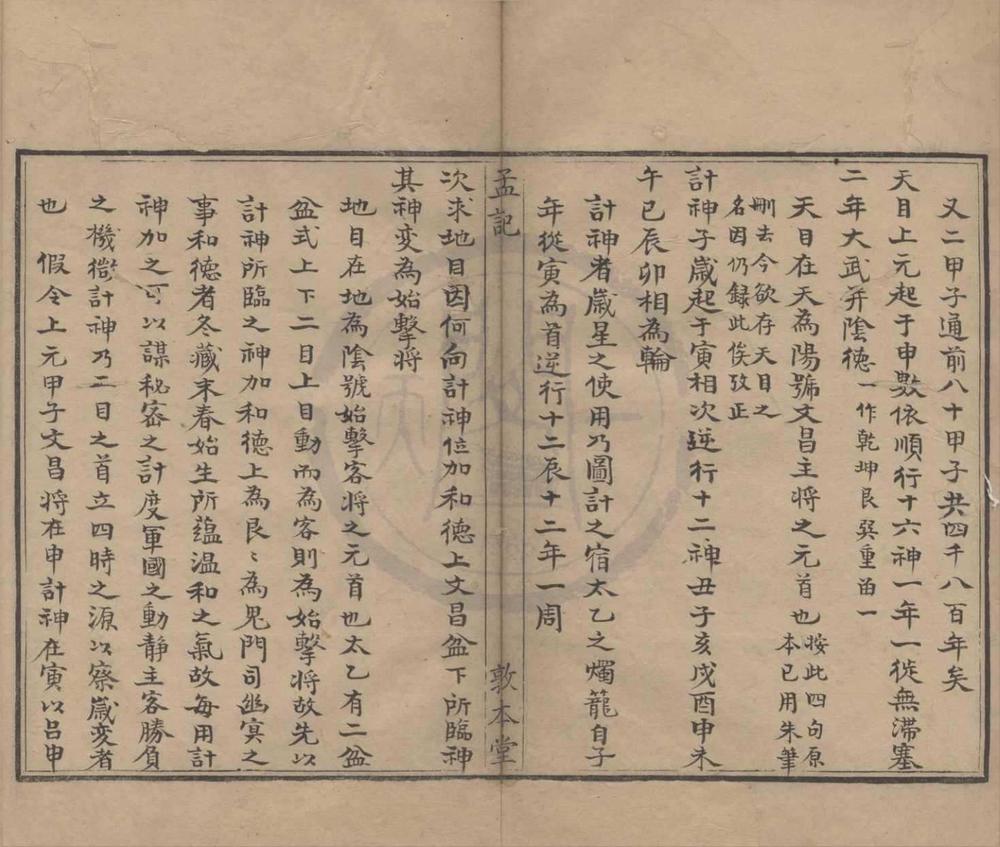 又二甲子通前八十甲子共四千八百年矣
天目上元起于申數依順行十六神一年一徙無滯塞
二年大武并陰德一作乾坤艮巽重畄一
天目在天為陽號文昌主將之元首也按此四句原本已用朱筆
刪去今欲存天目之名因仍録此俟攷正
計神子歲起于寅相次逆行十二神丑子亥戌酉申未
午巳辰卯相為輪
計神者歲星之使用乃圖計之宿太乙之燭籠自子
年從寅為首逆行十二辰十二年一周
孟記
敦本堂
次求地目因何向計神位加和德上文昌盆下所臨神
其神变為始擊將
地目在地為陰號始擊客將之元首也太乙有二盆
盆式上下二目上目動而為客則為始擊將故先以
計神所臨之神加和德上為艮〻為鬼門司幽冥之
事和德者冬藏末春始生所蘊温和之氣故每用計
神加之可以謀秘密之計度軍國之動靜主客勝負
之機衛計神乃二目之首立四時之源以察歲变者
也 假令上元甲子文昌將在申計神在寅以吕申